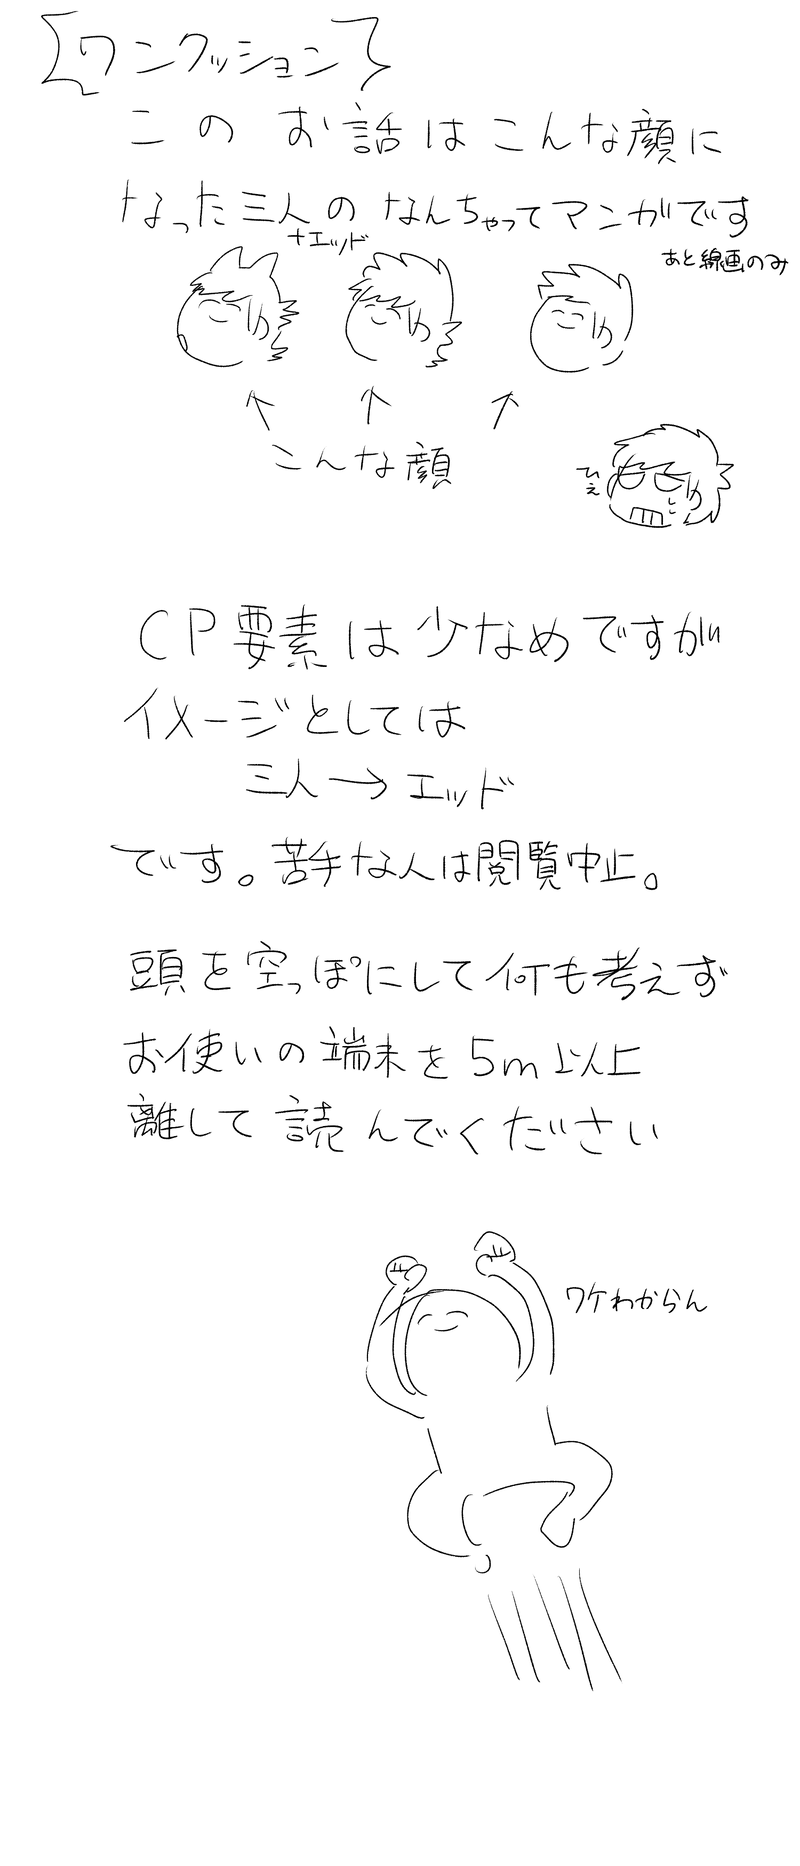 【ワンクッション】
このお話はこんな顔に
なった三人のなんちゃってマンガです
+エッド
あと線画のみ
こんな顔
ひえ
CP要素は少なめですが
イメージとしては
三人→エッド
です。苦手な人は閲覧中止。
頭を空っぽにして何も考えず
お使いの端末を5m以上
離して読んでください
ワケわからん